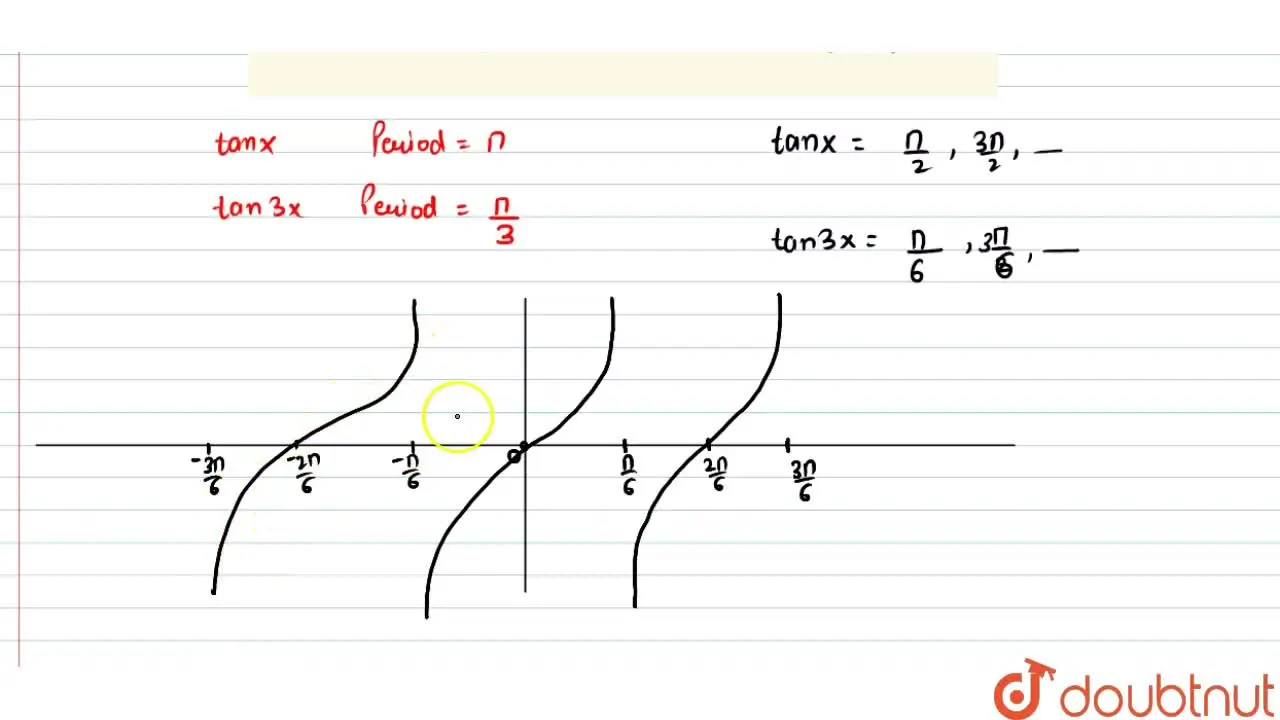 tanx Period = π
tan3x Period = π/3
tanx = π/2 , 3π/2 , —
tan3x = π/6 , 3π/6 , —
-3π/6 -2π/6 -π/6 0 π/6 2π/6 3π/6
doubtnut